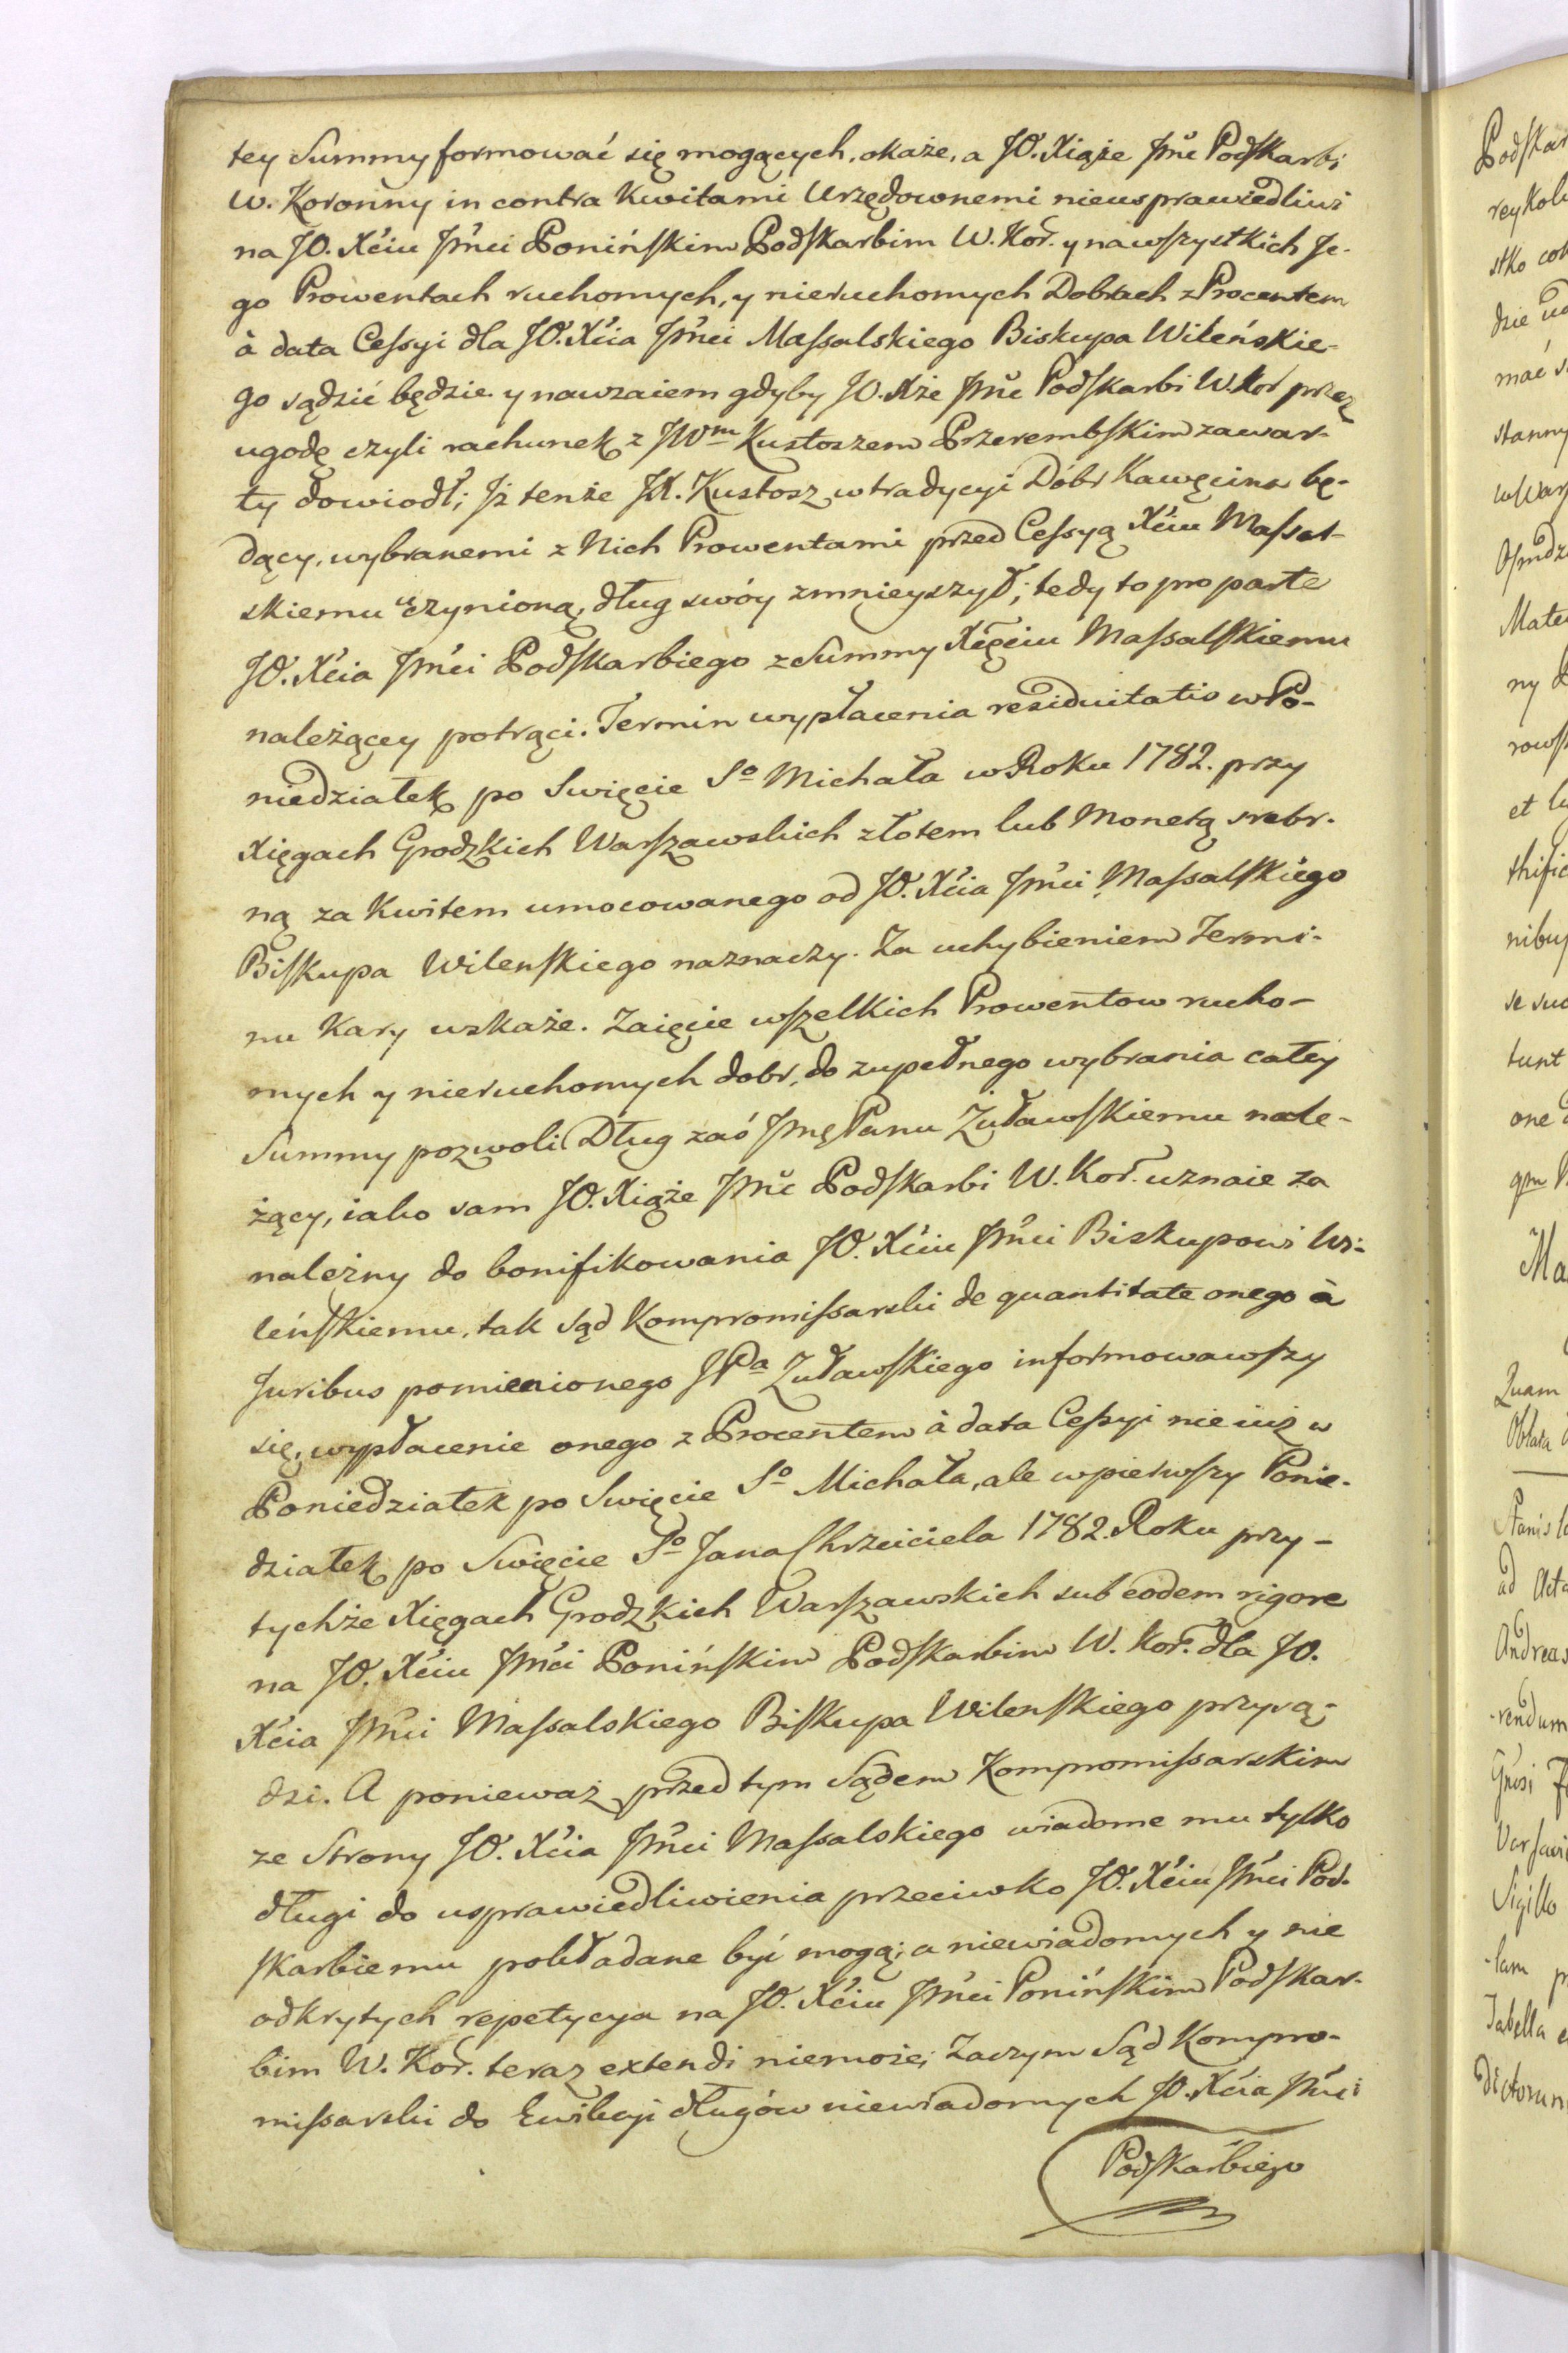 tey Summy formować się mogących, okaże, a JO. Xiąże Jmć Podskarbi
W. Koronny in contra Kwitami Urzędownemi nieusprawiedliwi
na JO. Xćiu Jmći Ponińskim Podskarbim W. Kor. y na wszystkich Je-
go Prowentach ruchomych, y nieruchomych Dobrach z Procentem
à data Cessyi dla JO. Xćia Jmći Massalskiego Biskupa Wileńskie-
go sądzić będzie y nawzaiem gdyby JO. Xże Jmć Podskarbi W. Kor przez
ugodę czyli rachunek z JWm Kustoszem Przerembskim zawar-
ty dowiodł; Jż tenże JX. Kustosz w tradycyi Dóbr Kawęcina bę-
dący, wybranemi z Nich Prowentami przed Cessyą Xćiu Massal-
skiemu uczynioną, dług swóy zmnieyszył; tedy to pro parte
JO. Xćia Jmći Podskarbiego z Summy Xięciu Massalskiemu
należącey potrąci. Termin wypłacenia residuitatis w Po-
niedziałek po Swięcie So Michała w Roku 1782. przy
Xięgach Grodzkich Warszawskich złotem lub Monetą srebr-
ną za Kwitem umocowanego od JO. Xćia Jmći Massalskiego
Biskupa Wilenskiego naznaczy. Za uchybieniem Termi-
nu Kary wskaże. Zaięcie wszelkich Prowentow rucho-
mych y nieruchomych dobr, do zupełnego wybrania całey
Summy pozwoli Dług zaś Jmę Panu Żuławskiemu nale-
żący, iako sam JO. Xiąże Jmć Podskarbi W. Kor. uznaie za
należny do bonifikowania JO. Xćiu Jmći Biskupowi Wi-
leńskiemu, tak Sąd Kompromissarski de quantitate onego à
Juribus pomienionego JPa Żuławskiego informowawszy
się, wypłacenie onego z Procentem à data Cessyi nie iuż w
Poniedziałek po Swięcie So Michała, ale w pierwszy Ponie-
działek po Swięcie So Jana Chrzciciela 1782. Roku przy-
tychże Xięgach Grodzkich Warszawskich sub eodem rigore
na JO. Xćiu Jmći Ponińskim Podskarbim W. Kor. dla JO.
Xćia Jmći Massalskiego Biskupa Wilenskiego przysą-
dzi. A ponieważ przed tym Sądem Kompromissarskim
ze Strony JO. Xćia Jmći Massalskiego wiadome mu tylko
długi do usprawiedliwienia przeciwko JO. Xćiu Jmći Pod-
skarbiemu pokładane być mogą; a niewiadomych y nie
odkrytych repetycya na JO. Xćiu Jmći Ponińskim Podskar-
bim W. Kor. teraz extendi niemoże; Zaczym Sąd Kompro-
missarski do Ewikcyi długów niewiadomych JO. Xćia Jmći
Podskarbiego